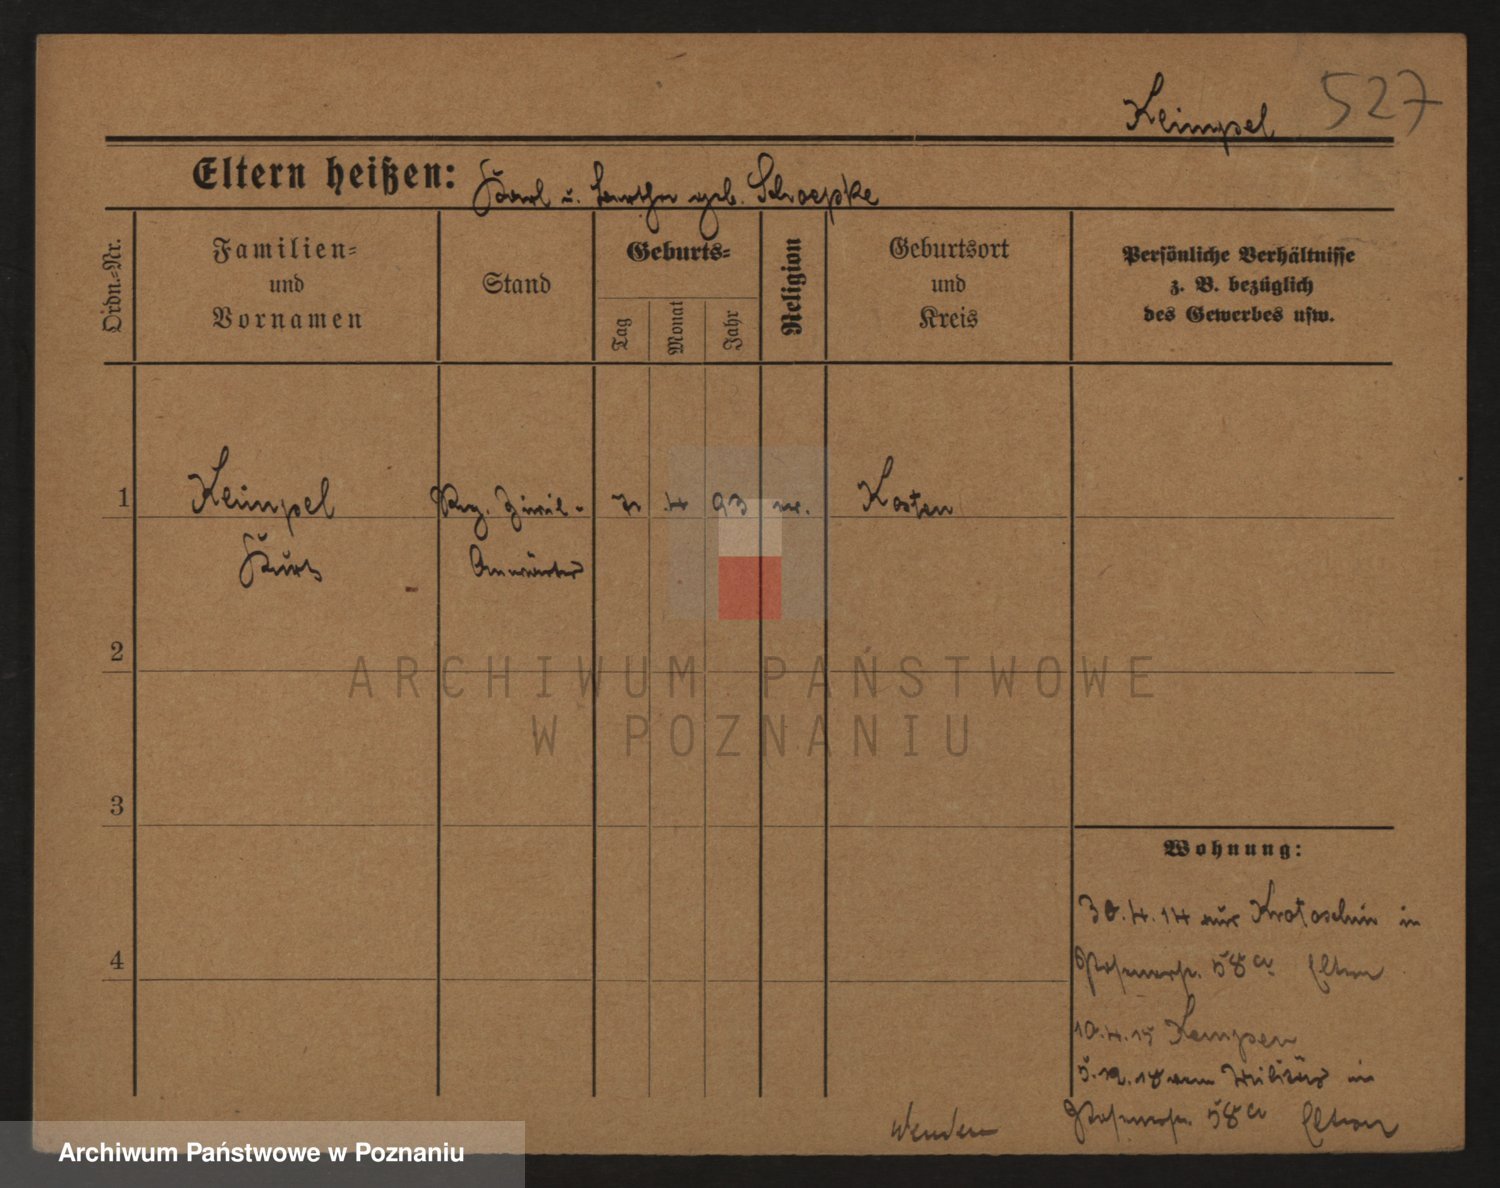 Keimpel 527
Eltern heißen: Karl u. Bertha geb. Schoepke
Ordn.-Nr.
Familien-
und
Vornamen
Stand
Geburts-
Tag
Monat
Jahr
Religion
Geburtsort
und
Kreis
Persönliche Verhältnisse
z. B. bezüglich
des Gewerbes usw.
1 Keimpel Reg. Zivil- 4 93 Kosten
Kurt Anwärter
2
3
4
Wohnung:
30.4.14 aus Krotoschin in
58a Eltern
10.4.15 Kempen
vom Militär in
58a Eltern
Wenden
ARCHIWUM PAŃSTWOWE
W POZNANIU
Archiwum Państwowe w Poznaniu